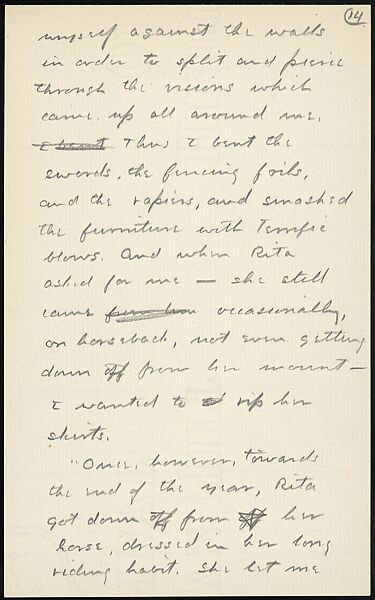 14
myself against the walls
in order to split and pierce
through the visions which
came up all around me.
I bent Thus I bent the
swords, the fencing foils,
and the rapiers, and smashed
the furniture with terrific
blows. And when Rita
asked for me — she still
came occasionally,
on horseback, not even getting
down off from her mount —
I wanted to rip her
skirts.
"Once, however, towards
the end of the year, Rita
got down off from off her
horse, dressed in her long
riding habit. She let me